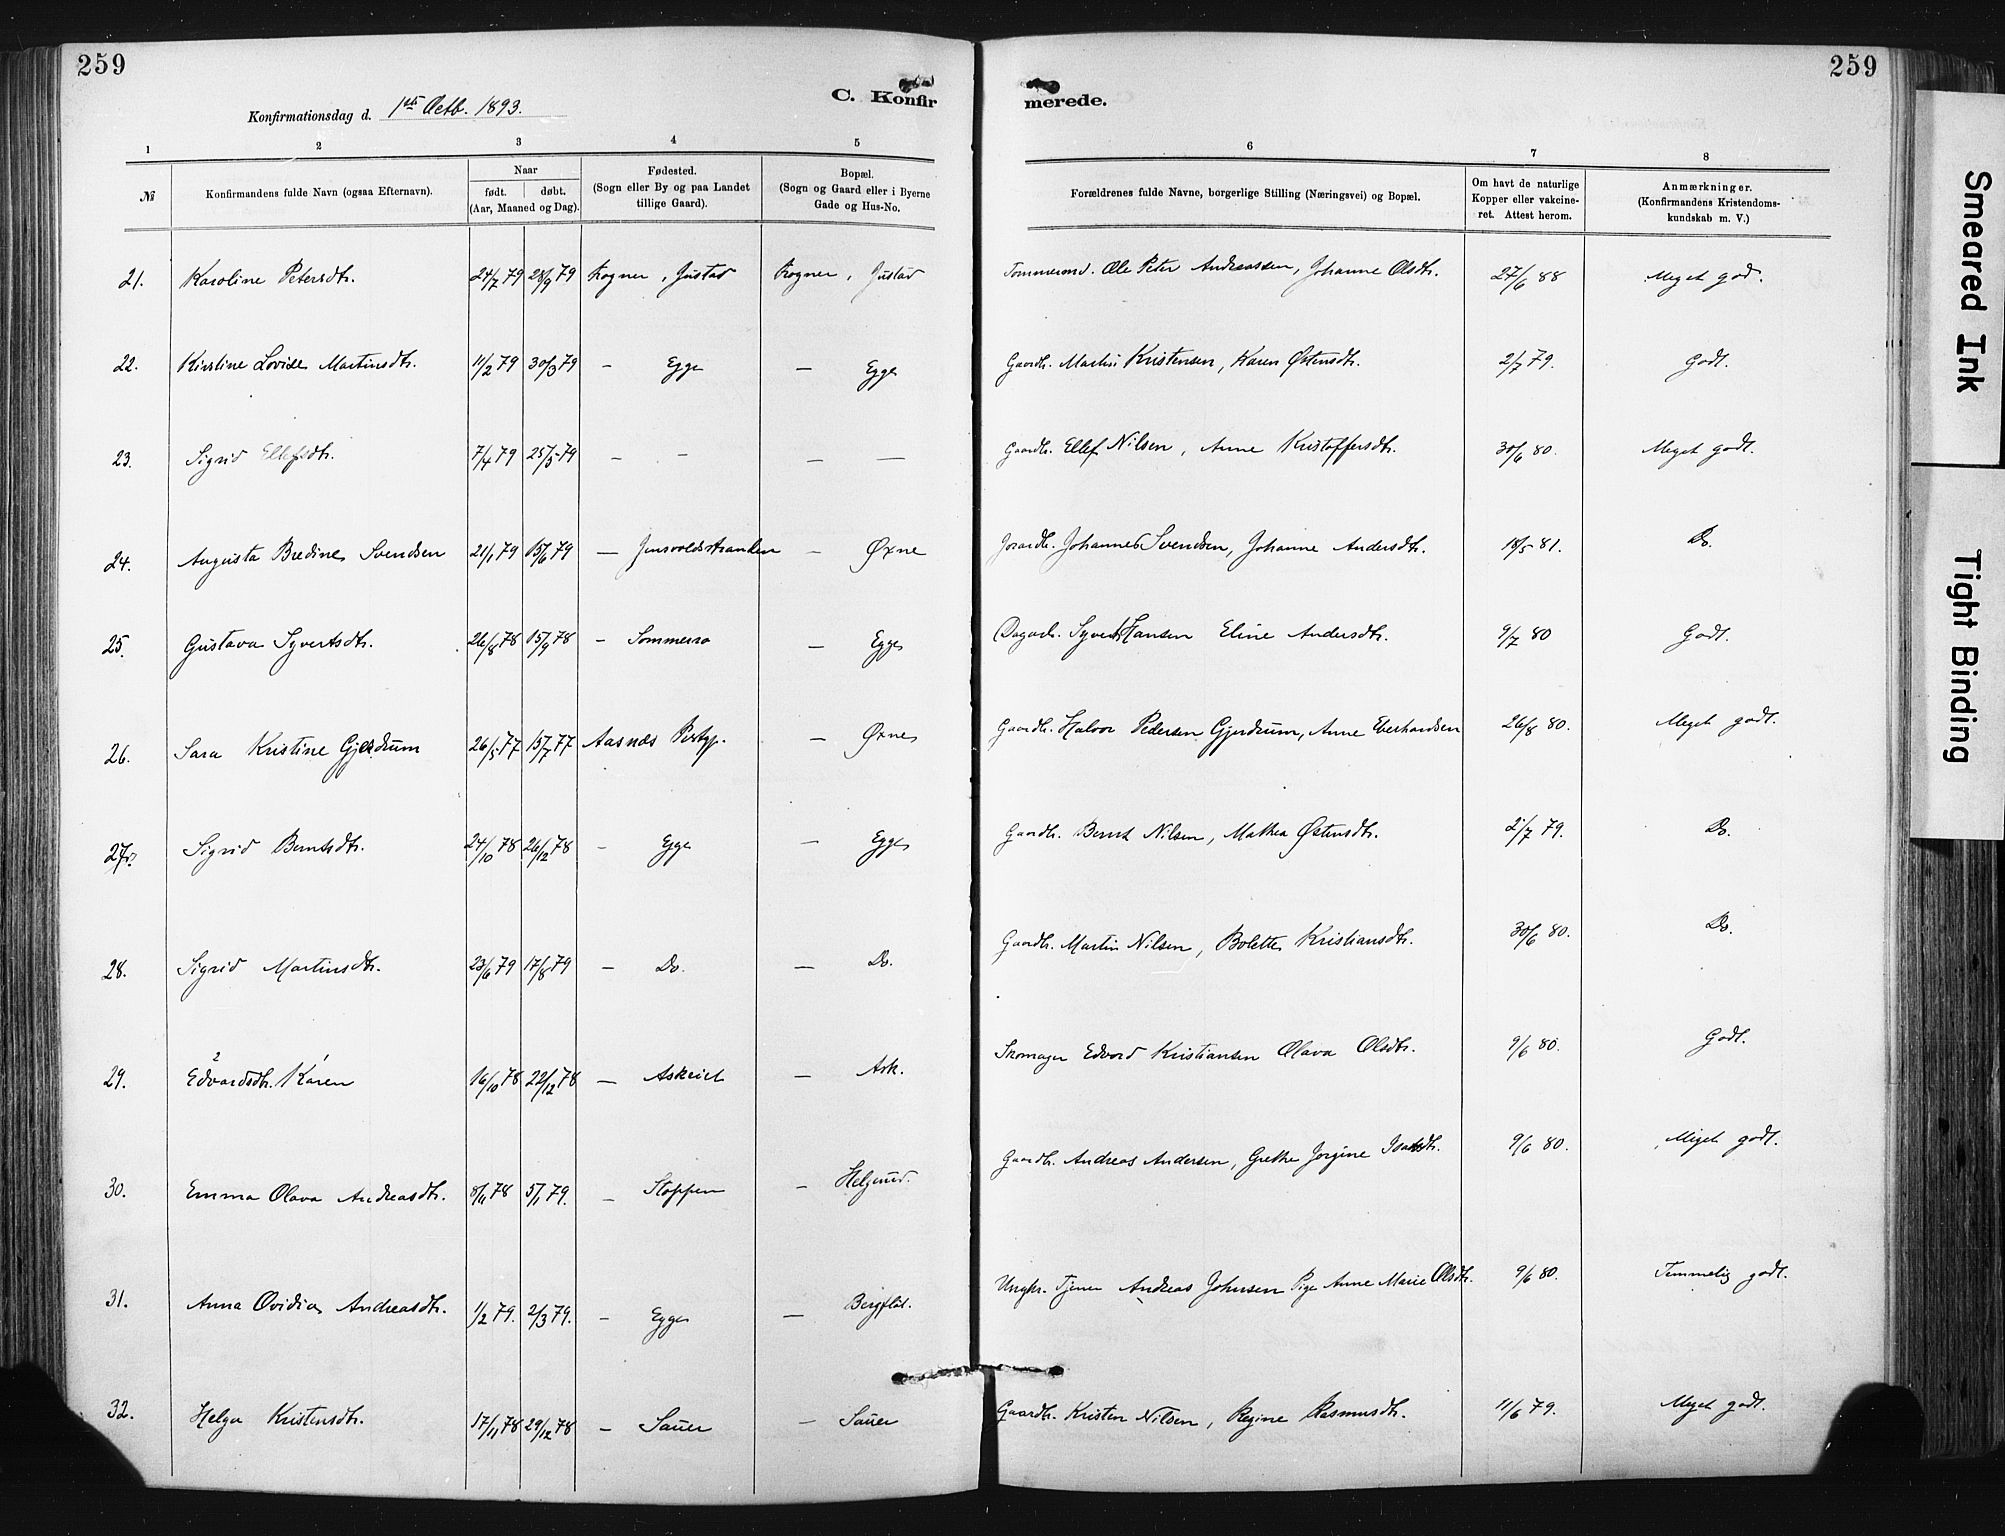 259
259
Konfirmationsdag d. 1ste Octb. 1893.
C. Konfirmerede.
1 2 3 4 5 6 7 8
№
Konfirmandens fulde Navn (ogsaa Efternavn).
Naar
født. døbt.
(Aar, Maaned og Dag).
Fødested.
(Sogn eller By og paa Landet
tillige Gaard).
Bopæl.
(Sogn og Gaard eller i Byerne
Gade og Hus-No.
Forældrenes fulde Navne, borgerlige Stilling (Næringsvei) og Bopæl.
Om havt de naturlige
Kopper eller vakcine-
ret. Attest herom.
Anmærkninger.
(Konfirmandens Kristendoms-
kundskab m. V.)
21. Karoline Petersdtr. 24/7 79 28/9 79 Frogner, Gustad Frogner, Gustad Tømmermd. Ole Peter Andreassen, Johanne Olsdtr. 27/6 88 Meget god.
22. Kirstine Lovise Martinsdtr. 11/2 79 30/3 79 — Egge — Egge Gaardbr. Martin Kristensen, Karen Østensdtr. 2/7 79. Godt.
23. Sigrid Ellefsdtr. 7/4 79 25/5 79 — — — — Gaardbr. Ellef Nilsen, Anne Kristoffersdtr. 30/6 80. Meget godt.
24. Augusta Bredine Svendsen 21/1 79 15/6 79 — Jensvoldstranden — Øxne Johannes Svendsen, Johanne Andersdtr. 18/5 81. Do.
25. Gustava Syvertsdtr. 26/8 78 15/9 78 — Sommerro — Egge Dagarb. Syvert Hansen Eline Andersdtr. 9/7 80 Godt.
26. Sara Kristine Gjerdrum 26/5 77 15/7 77 Aasnæs — Øxne Gaardbr. Halvor Pedersen Gjerdrum, Anne Eberhardsen 26/8 80. Meget godt.
27. Sigrid Berntsdtr. 24/10 78 26/12 78 — Egge — Egge Gaardbr. Bernt Nilsen, Mathea Østensdtr. 2/7 79. Do.
28. Sigrid Martinsdtr. 23/6 79 17/8 79 — Do. — Do. Gaardbr. Martin Nilsen, Bolette Kristiansdtr. 30/6 80. Do.
29. Edvardsdtr. Karen 16/10 78 22/12 78 — Askeiet — Ask. Skomager Edvard Kristiansen Olava Olsdtr. 9/6 80. Godt.
30. Emma Olava Andreasdtr. 8/11 78 5/1 79. — Stoppen — Helgerud. Gaardbr. Andreas Andersen, Grethe Jørgine Isaksdtr. 9/6 80. Meget godt.
31. Anna Ovidia Andreasdtr. 1/2 79. 2/3 79. — Egge — Bergflôt. Ungkr. Tjener Andreas Johnsen Pige Anne Marie Olsdtr. 9/6 80. Temmelig godt.
32. Helga Kristensdtr. 17/11 78 29/12 78 — Sauer — Sauer Gaardbr. Kristen Nilsen, Regine Rasmusdtr. 11/6 79. Meget godt.
Smeared Ink
Tight Binding